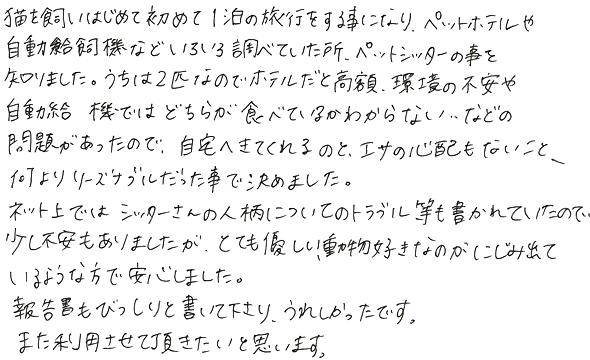 猫を飼いはじめて初めて1泊の旅行をする事になり、ペットホテルや
自動給餌機などいろいろ調べていた所、ペットシッターの事を
知りました。うちは2匹なのでホテルだと高額、環境の不安や
自動給 機ではどちらが食べているかわからない‥などの
問題があったので、自宅へきてくれるのと、エサの心配もないこと、
何よりリーズナブルだった事で決めました。
ネット上ではシッターさんの人柄についてのトラブル等も書かれていたので、
少し不安もありましたが、とても優しい動物好きなのがにじみ出て
いるような方で安心しました。
報告書もびっしりと書いて下さり、うれしかったです。
また利用させて頂きたいと思います。